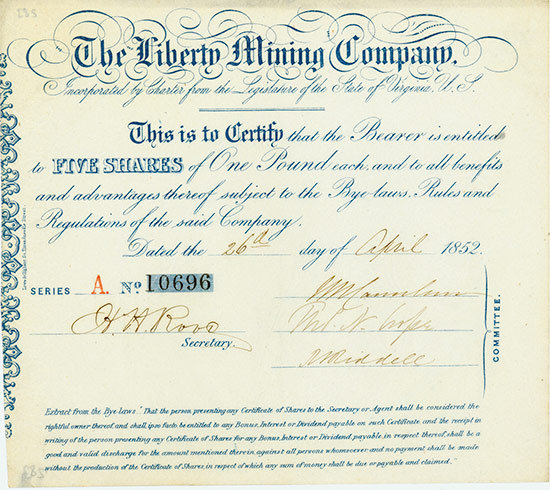 The Liberty Mining Company.
Incorporated by Charter from the Legislature of the State of Virginia, U.S.
This is to Certify that the Bearer is entitled
to FIVE SHARES of One Pound each, and to all benefits
and advantages thereof subject to the Bye-laws, Rules and
Regulations of the said Company.
Dated the 26th day of April 1852.
SERIES A. No 10696
Secretary.
Riddell
COMMITTEE.
Extract from the Bye laws. "That the person presenting any Certificate of Shares to the Secretary or Agent shall be considered the
rightful owner thereof and shall ipso facto be entitled to any Bonus, Interest or Dividend payable on such Certificate and the receipt in
writing of the person presenting any Certificate of Shares for any Bonus, Interest or Dividend, payable, in respect thereof, shall be a
good and valid discharge for the amount mentioned therein, against all persons whomsoever and no payment shall be made
without the production of the Certificate of Shares, in respect of which any sum of money shall be due or payable and claimed."